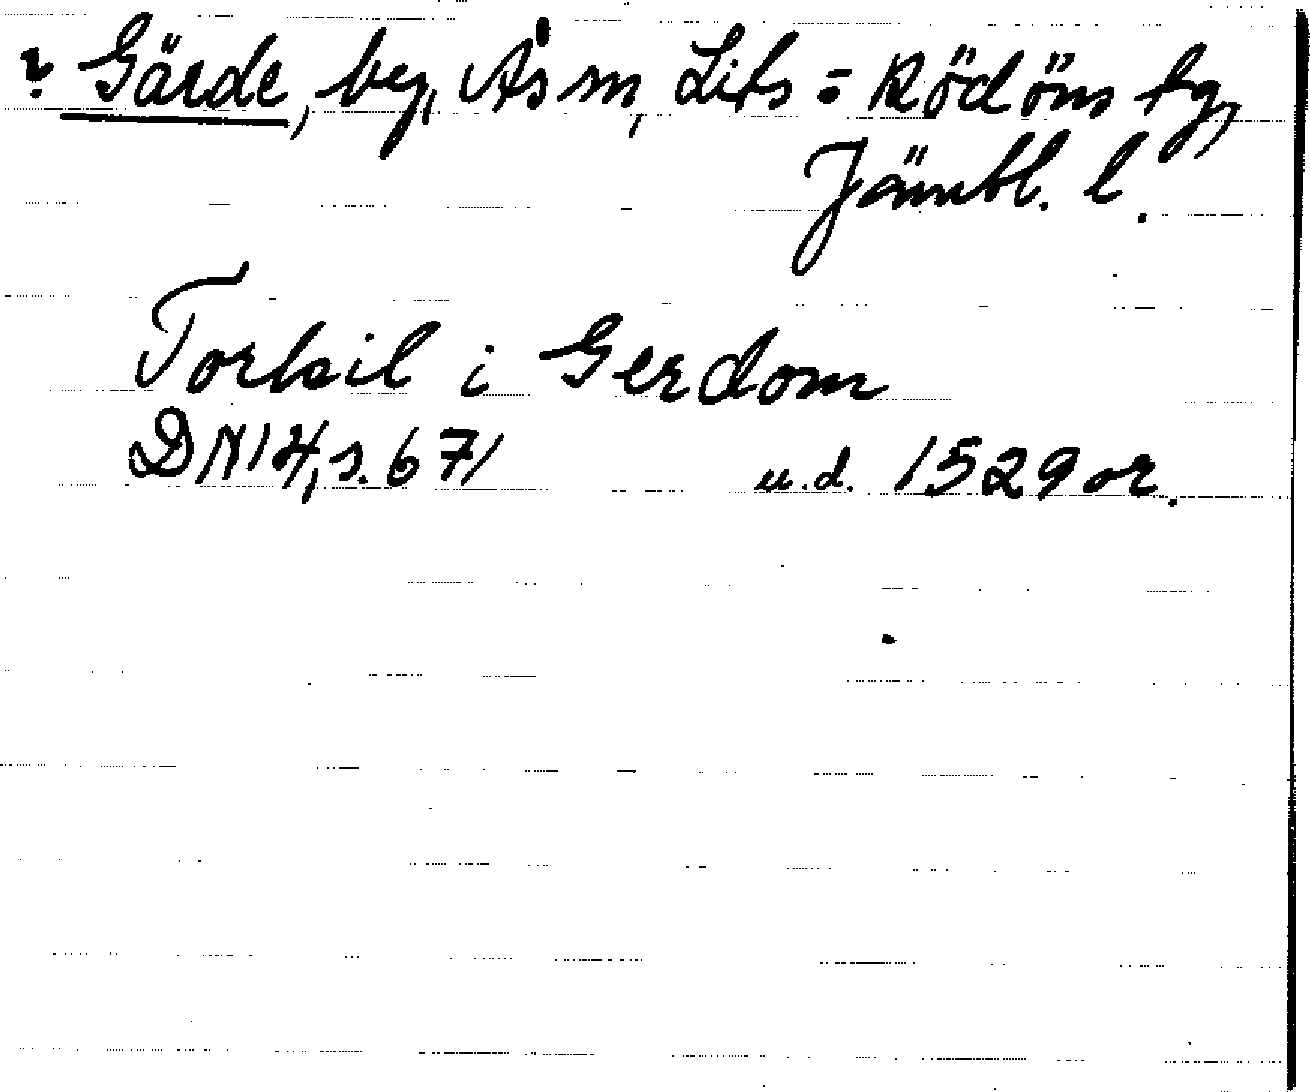 ? Gärde, by, Ås sn, Lits = Rödöns tg,
Jämtl. l.
Torkil i Gerdom
DN 14, s. 671 u.d. 1529 or.